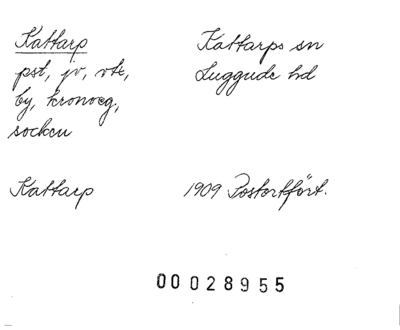 Kattarp Kattarps sn
pst, jv, vtc, Luggude hd
by, kronoeg,
socken
Kattarp 1909 Postortfört.
00028955